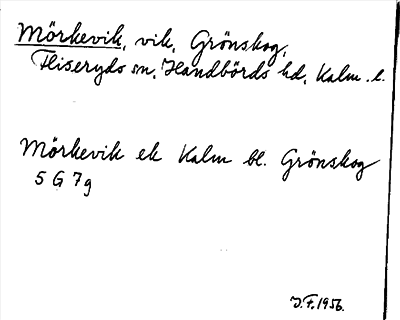 Mörkevik, vik, Grönskog,
Fliseryds sn, Handbörds hd, Kalm. l.
Mörkevik ek Kalm bl. Grönskog
5 G 7g
J.F. 1956.